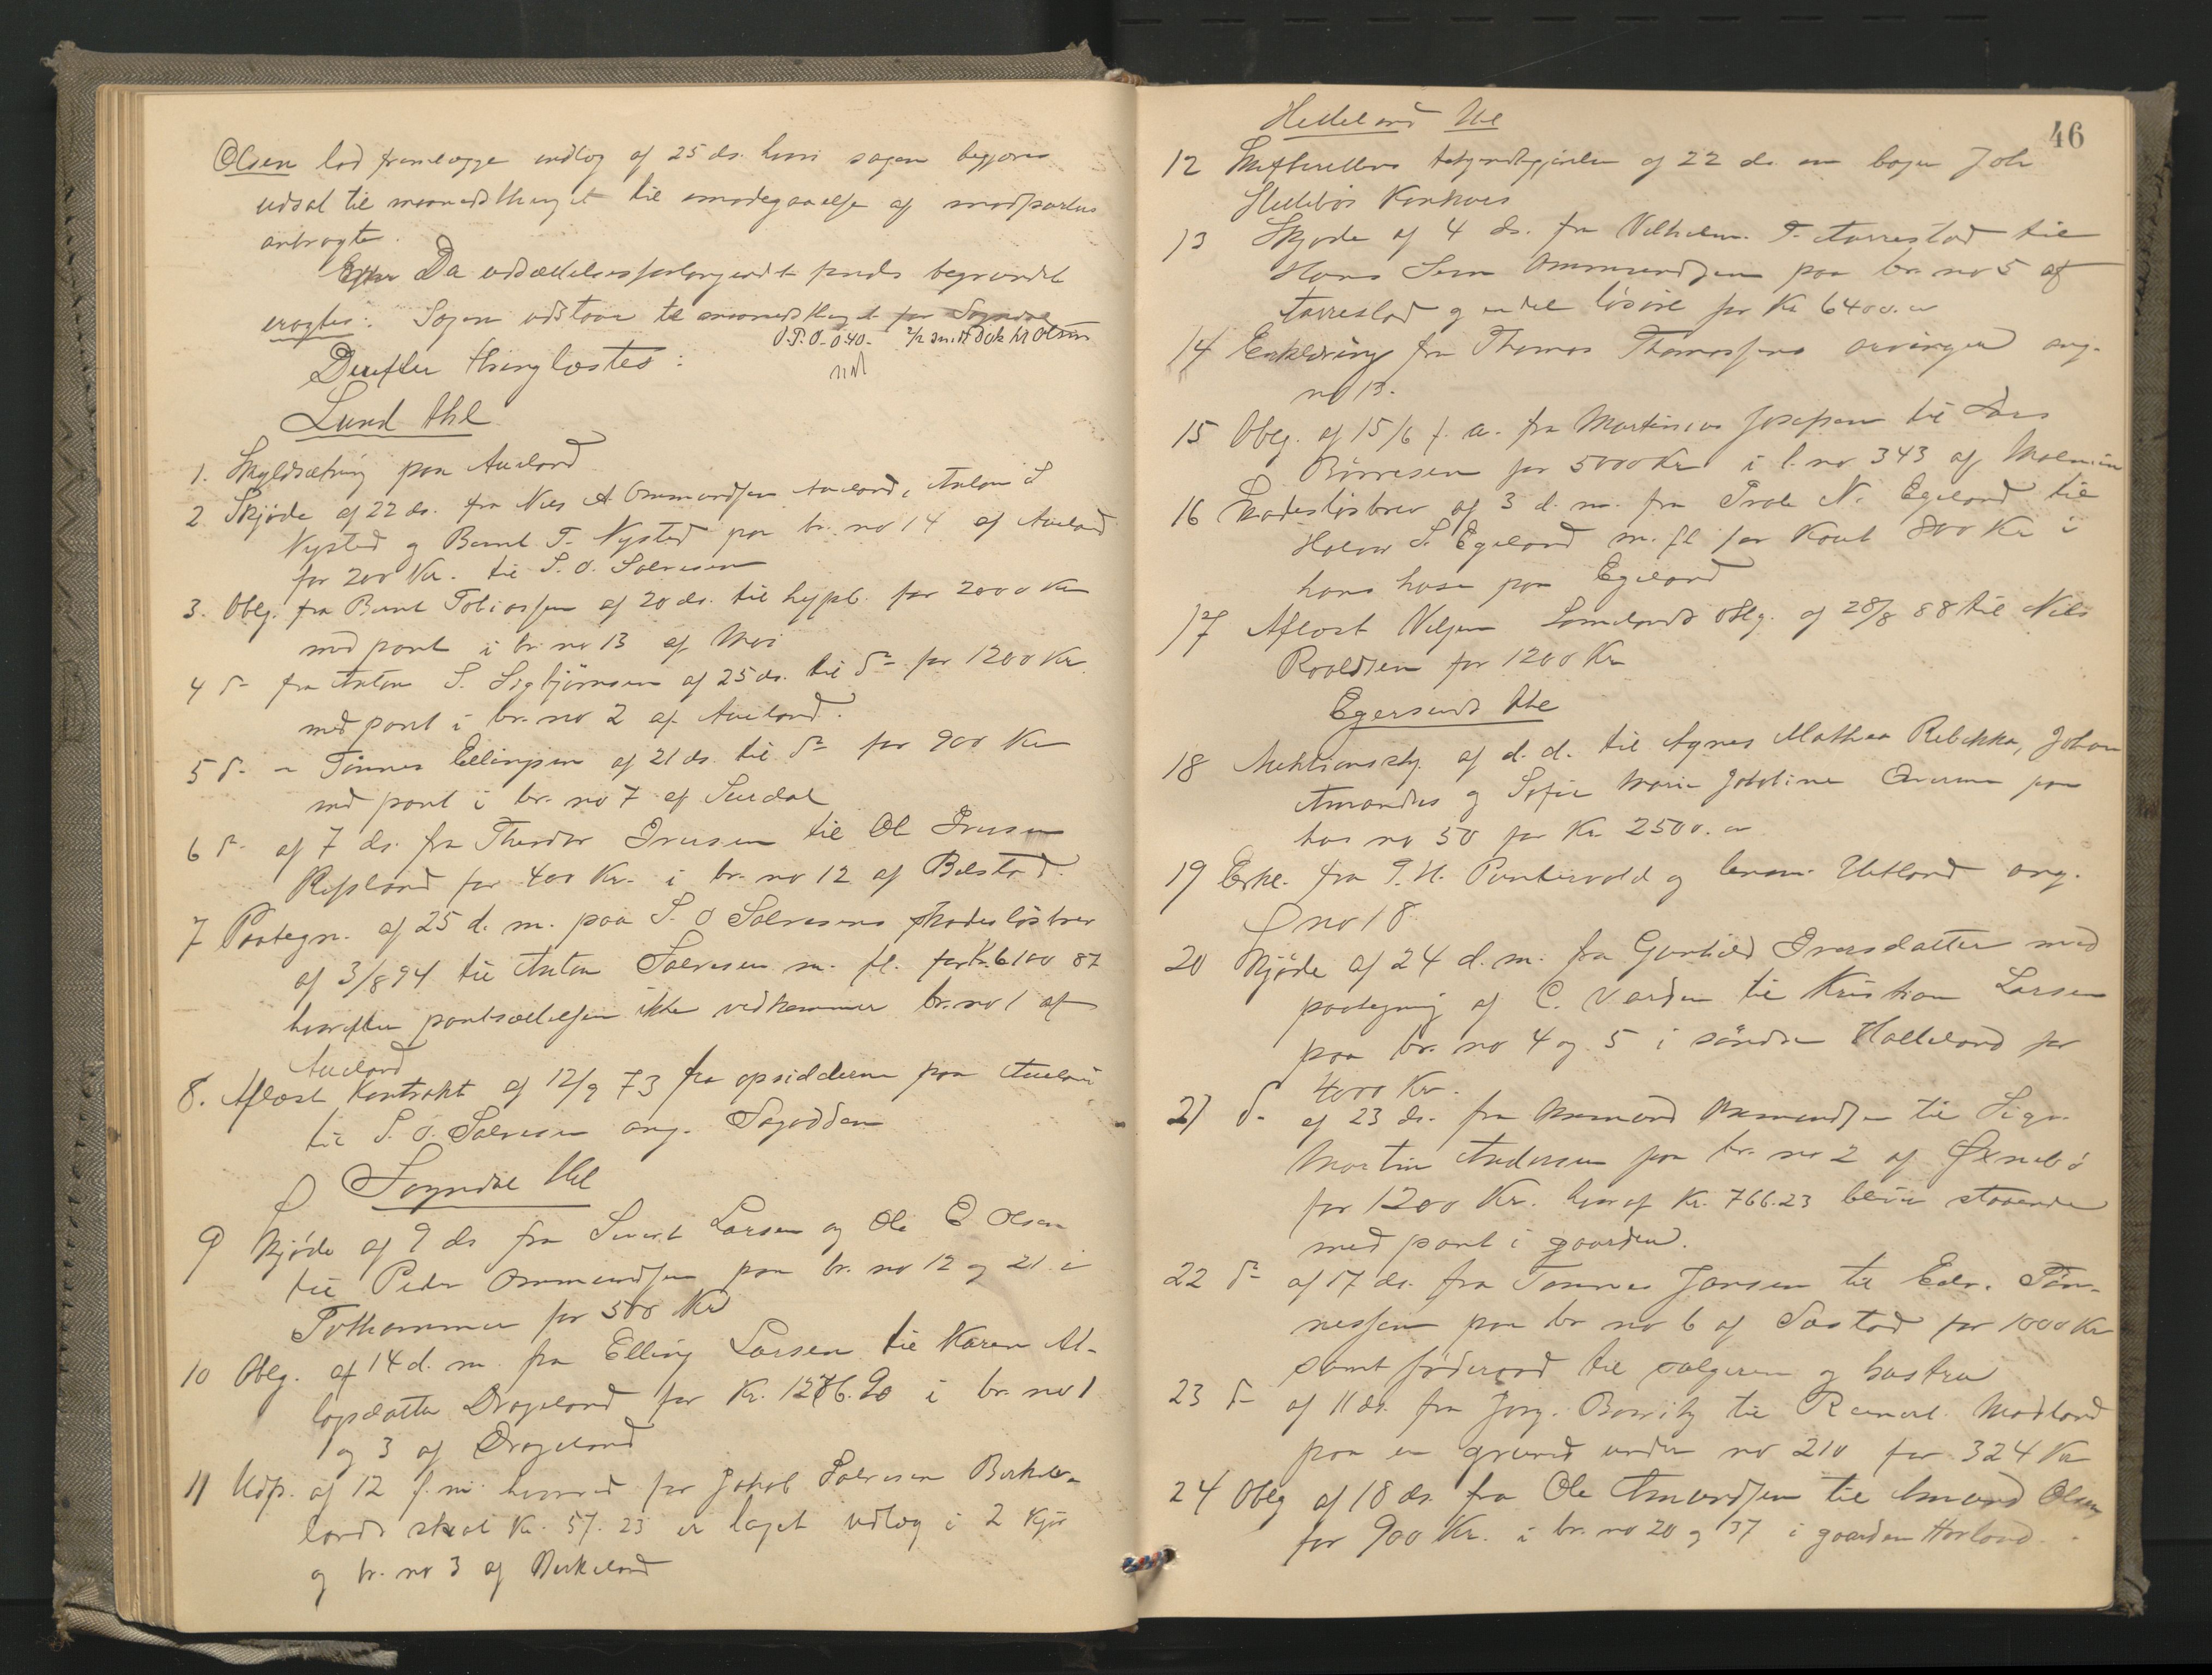 Olsen lod fremlægge indlæg af 25 ds. hvori sagen begjæres
udsat til maanedsthinget til imødegaaelse af modpartens
anbragte.
Da udsættelsesforlangendet findes begrundet
eragtes: Sagen udstaar til maanedsthinget for Sogndal
O.T.O. 0.40.
Derefter thinglæstes:
Lund thl
1. Skyldsætning paa Aueland
2 Skjøde af 22 ds. fra Nils A Ommundsen Aueland, Anton S
Nysted og Bernt T. Nysted paa br. no 14 af Aueland
for 200 Kr. til S. O. Salvesen
3. Oblg. fra Bernt Tobiassen af 20 ds. til hypb. for 2000 Kr
med pant i br. no 13 af Moi
4 do fra Anton S. Sigbjørnsen af 25 ds. til do for 1200 Kr
med pant i br. no 2 af Aueland.
5 do - Tønnes Ellingsen af 21 ds. til do for 900 Kr
med pant i br. no 7 af Surdal
6 do af 7 ds. fra Theodor Iversen til Ol Iversen
Refsland for 400 Kr. i br. no 12 af Bilstad.
7 Paategn. af 25 d. m. paa S. O Salvesens skadesløsbrev
af 3/8 94 til Anton Salvesen m. fl. for Kr. 6100 87
hvorefter pantsættelsen ikke vedkommer br. no 1 af
Aueland
8. Aflæst Kontrakt af 12/9 73 fra opsidderne paa Aueland
til S. O. Salvesen ang. Sagodden
Sogndal thl
9 Skjøde af 9 ds fra Sivert Larsen og Ole E Olsen
til Peder Ommundsen paa br. no 12 og 21 i
Tothammer for 500 Kr
10 Oblg. af 14 d. m. fra Elling Larsen til Karen At-
lagsdatter Drageland for Kr. 1276.90 i br. no 1
og 3 af Drageland
11 Udp. af 12 f. m. hvorved for Jakob Salvesen Birke-
lands skat Kr. 57.23 er taget udlæg i 2 kjør
og br. no 3 af Birkeland
46
Helleland thl
12 Skifterettens bekjendtgjørelse af 22 ds. om bager Joh
Hellebøs Konkurs
13 Skjøde af 4 ds. fra Vilhelm T. Aarrestad til
Hans Sem Ommundsen paa br. no 5 af
Aarrestad og endel løsøre for Kr 6400.00
14 Erklæring fra Thomas Thomassens arvinger ang.
no 13.
15 Oblg. af 15/6 f. a. fra Martinius Josefsen til Lars
Børresen for 5000 Kr i l. no 343 af
16 Skadesløsbrev af 3 d. m. fra Trole N. Egeland til
Halvor S. Egeland m. fl for Kaut. 800 Kr i
hans huse paa Egeland
17 Aflæst Veljem Lomelands oblg. af 28/8 88 til Nils
Roaldsen for 1200 Kr
Egersund thl
18 Auktionssky. af d. d. til Agnes Mathea Rebekka, Johan
Amandus og Sofie Marie Jakobine paa
hus no 50 for Kr 2500.00
19 Erkl. fra P. H. Puntervold og Utland ang.
no 18
20 Skjøde af 24 d. m. fra Gunhild Iversdatter med
paategning af C. Varden til Kristian Larsen
paa br. no 4 og 5 i søndre Halleland for
4000 Kr.
21 do af 23 ds. fra Asmund Asmundsen til Sigv.
Martin Andersen paa br. no 2 af Øxnebø
for 1200 Kr. hvoraf Kr. 766.23 bliver staaende
med pant i gaarden.
22 do af 17 ds. fra Tønnes Jansen til Edv. Tøn-
nessen paa br no 6 af Sæstad for 1000 Kr
samt føderaad til sælgeren og hustru
23 do af 11 ds. fra Jørg. til Reinert Modland
paa en grund under no 210 for 324 Kr
24 Oblg af 18 ds. fra Ole Amundsen til Amund Olsen
for 900 Kr. i br. no 20 og 37 i gaarden Havland.